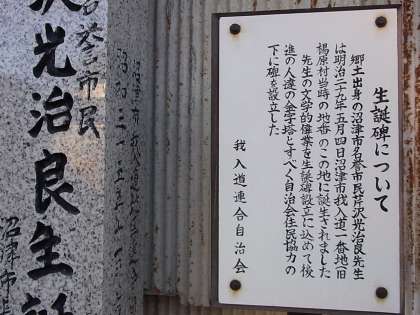 生誕碑について
郷土出身の沼津市名誉市民芹沢光治良先生
は明治二十九年五月四日沼津市我入道一番地(旧
楊原村当時の地番)のこの地に誕生されました
先生の文学的偉業を生誕碑設立に込めて後
進の人達の金字塔とすべく自治会住民協力の
下に碑を設立した
我入道連合自治会
名誉市民
沢光治良生誕
沼津市長